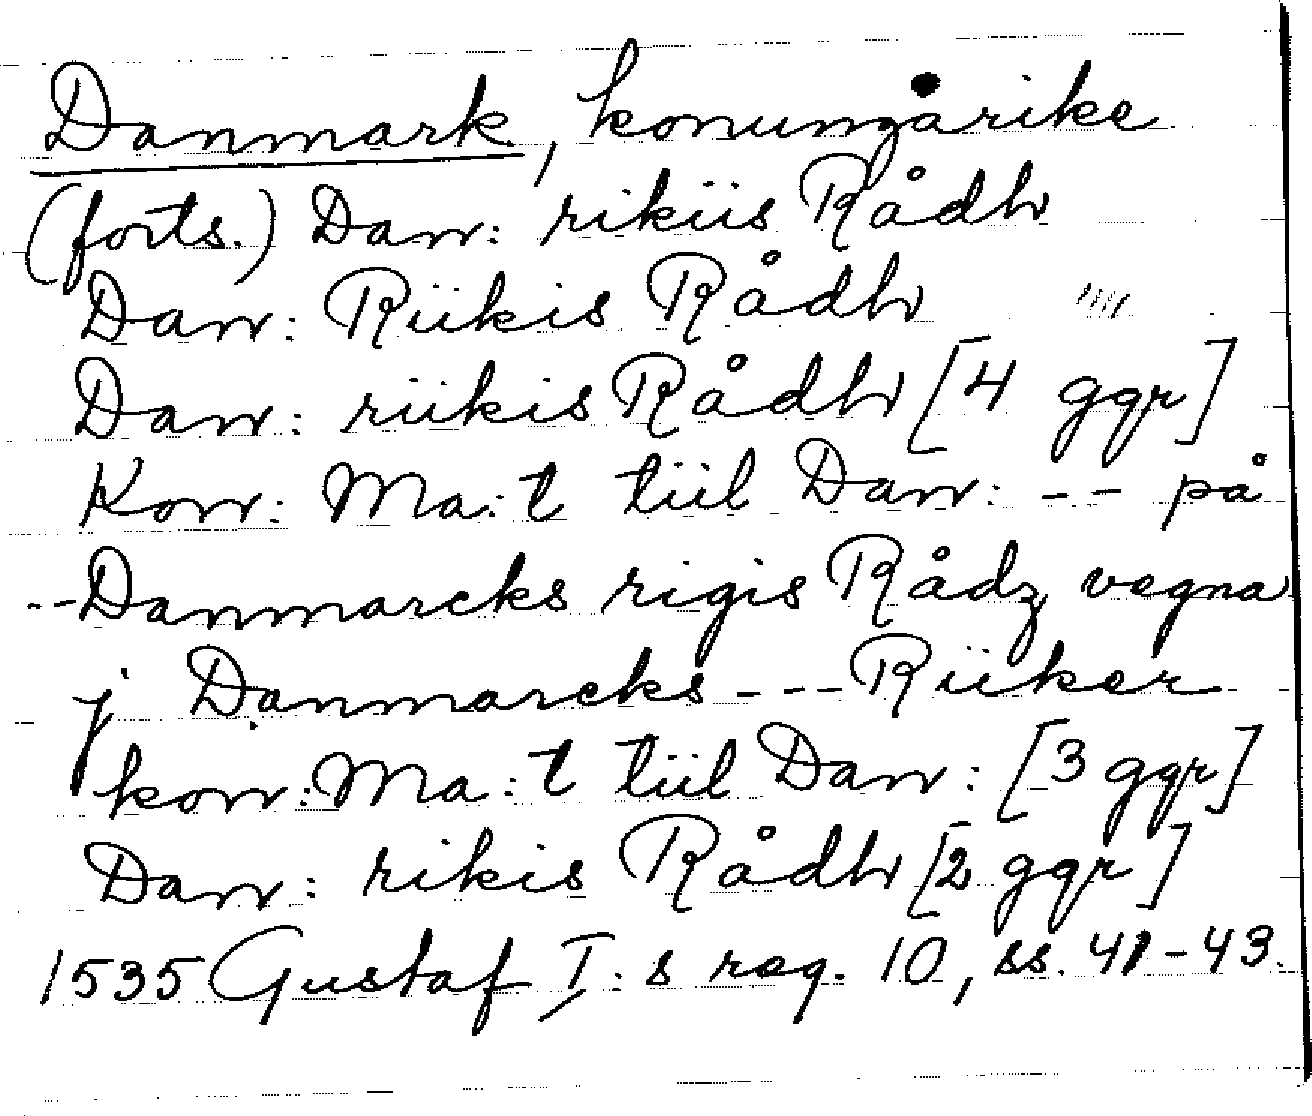 Danmark, konungarike
(forts.) Dan: rikiis Rådh
Dan: Riikis Rådh ""
Dan: riikis Rådh [4 ggr]
Kon: Ma:t tiil Dan: -- på
-- Danmarcks rigis Rådz vegna
j Danmarcks --- Riiker
kon: Ma:t tiil Dan: [3 ggr]
Dan: rikis Rådh [2 ggr]
1535 Gustaf I:s reg. 10, ss. 41-43.